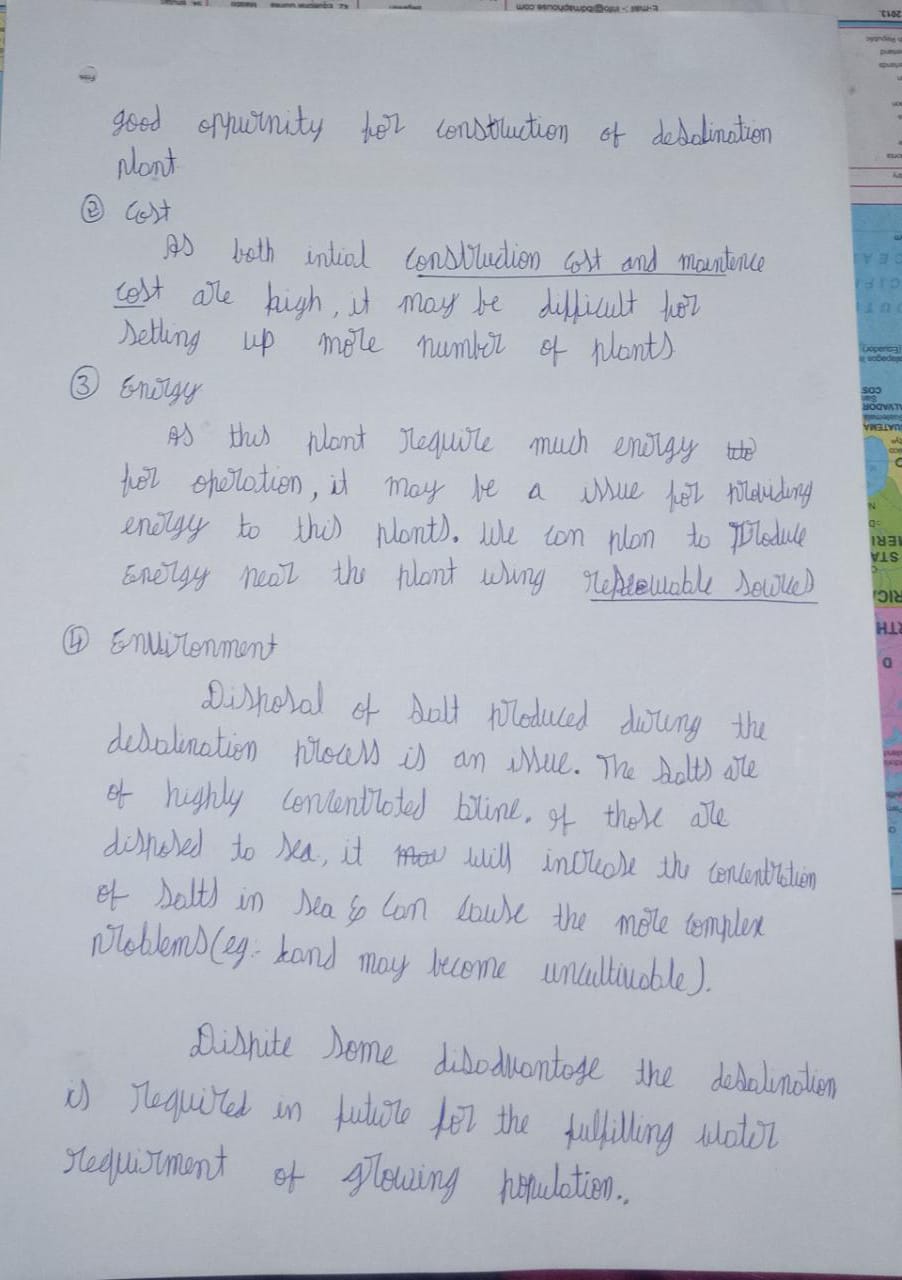 e-mail :- info@ibdmaphouse.com
2013.
good oppurnity for construction of desalination
plant
② Cost
As both intial construction cost and maintence
cost are high, it may be difficult for
setting up more number of plants
③ Energy
As this plant require much energy
for operation, it may be a issue for providing
energy to this plants. We can plan to produce
energy near the plant using renewable sources
④ Environment
Disposal of salt produced during the
desalination process is an issue. The salts are
of highly concentrated brine. If those are
disposed to sea, it will increase the concentration
of salts in sea & can cause the more complex
problems (eg:- Land may become uncultivable).
Dispite some disadvantage the desalination
is required in future for the fulfilling water
requirment of growing population.